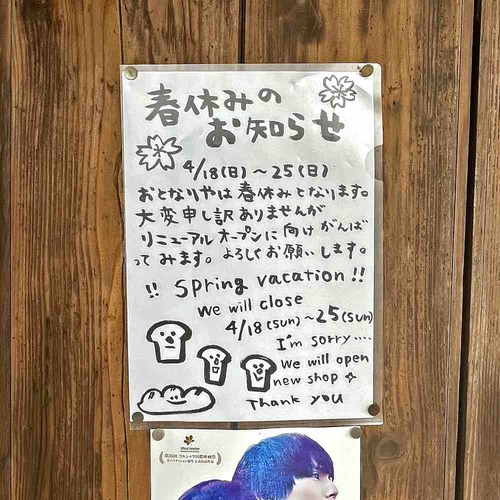 春休みの
お知らせ
4/18(日)～25(日)
おとなりやは春休みとなります。
大変申し訳ありませんが
リニューアルオープンに向けがんば
ってみます。よろしくお願いします。
!! Spring vacation !!
we will close
4/18(sun)～25(sun)
I'm sorry....
We will open
new shop
Thank you
Official Selection